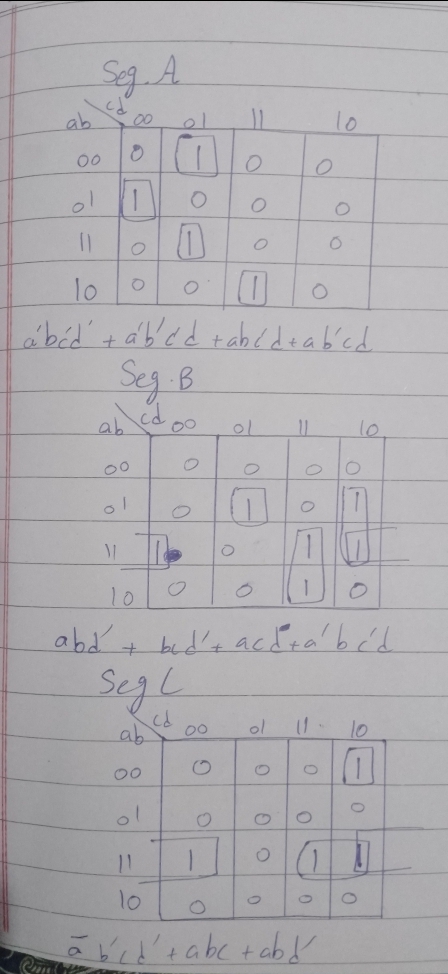 Seg. A
ab cd 00 01 11 10
00 0 1 0 0
01 1 0 0 0
11 0 1 0 0
10 0 0 1 0
a'bc'd' + a'b'c'd + abc'd + ab'cd
Seg. B
ab cd 00 01 11 10
00 0 0 0 0
01 0 1 0 1
11 1 0 1 1
10 0 0 1 0
abd' + bcd' + acd + a'bc'd
Seg C
ab cd 00 01 11 10
00 0 0 0 1
01 0 0 0 0
11 1 0 1 1
10 0 0 0 0
a̅ b'cd' + abc + abd'